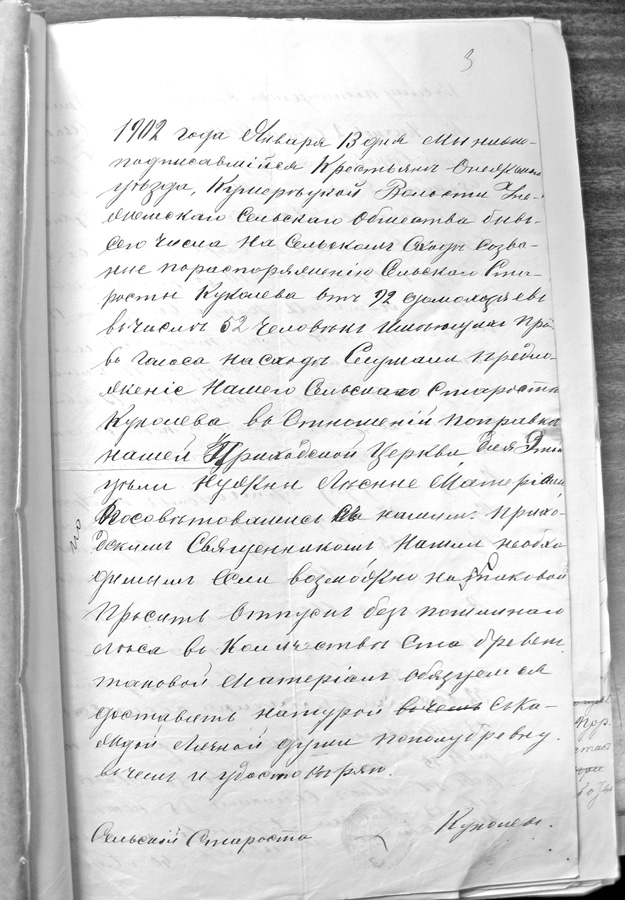 3
1902 года Января 13 дня Мы ниже-
подписавшійся Крестьянъ Онежскаго
уѣзда, Кушерѣцкой Волости
Сельскаго Общества быв-
сего числа на Сельскомъ Сходѣ созва-
ные пораспоряженію Сельскаго Ста-
росты Куколева отъ 72 домохозяевъ
въ числѣ 52 человѣкъ имѣющихъ пра-
во голоса на сходѣ Слушали предло-
женіе Нашего Сельскаго Старосты
Куколева въ Отношеній поправки
нашей Приходской Церкви для Этой
цѣли нужны Лесные Матеріалы
Посовѣтовались съ нашимъ прихо-
дскимъ Священникомъ нашли необхо-
димымъ если возможно на таковой
просить отпускъ безпошлинаго
леса въ Количествѣ Ста бревенъ
таковой Матеріалъ обязуемся
доставить натурой съ ка-
ждой личной души пополубревну.
въ чемъ и удостовѣряю.
Сельскій Староста Куколевъ.